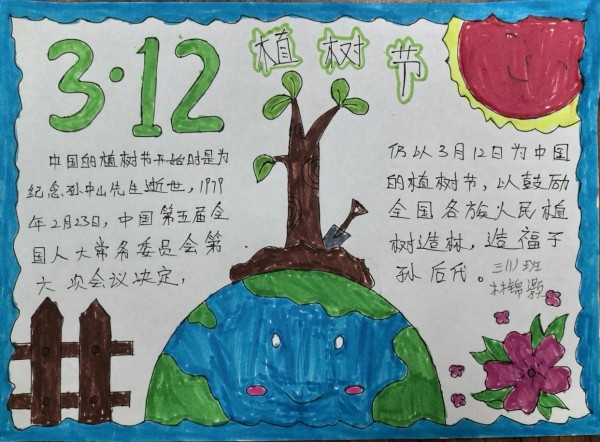 3·12
植树节
中国的植树节开始时是为
纪念孙中山先生逝世，1979
年2月23日，中国第五届全
国人大常务委员会第
六次会议决定，
仍以3月12日为中国
的植树节，以鼓励
全国各族人民植
树造林，造福子
孙后代。
三(1)班
林锦灏